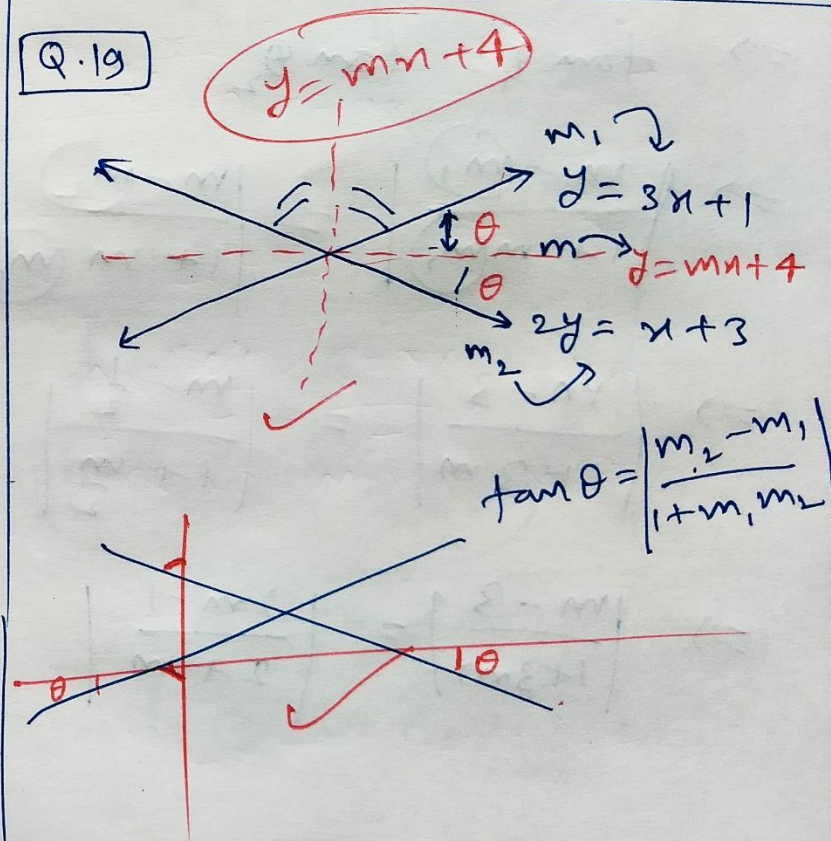 Q.19
y = mx + 4
m₁
y = 3x + 1
θ
m y = mx + 4
θ
2y = x + 3
m₂
tan θ = |m₂ - m₁ / 1 + m₁ m₂|
θ
θ